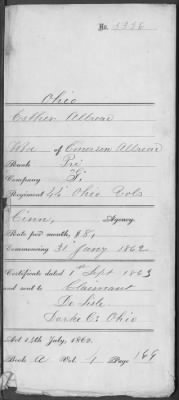 No.
Ohio
Esther Albrow
of Emerson Albrow
Rank Pri
Company
Regiment 44 Ohio Vols
Cinn, Agency.
Rate per month, $8/
Commencing 31 Jany 1862
Certificate dated 1st Sept 1863
and sent to Claimant
De Lisle
Darke Co Ohio
Act 14th July, 1862.
Book A Vol. 1 Page 166